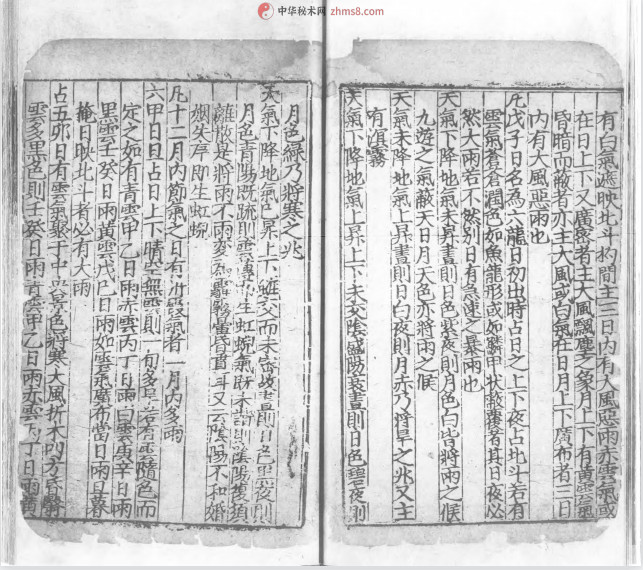 中华秘术网 zhms8.com
有白氣遮映北斗杓間主三日内有大風惡雨赤雲氣或
在日上下又廣密者主大風飄塵之象月上下有黃雲氣
昏暗而蔽者亦主大風或白氣在日月上下廣布者三日
内有大風惡雨也
凡戊子日名為六龍日初出時占日之上下夜占北斗若有
雲氣蒼潤色如魚龍形或如鱗甲状其日夜必
然大雨若不然別日有急速之暴雨也
天氣下降地氣未昇晝則日色紫夜則月色白皆將雨之候
九遊之氣蔽天日月天色亦將雨之候
天氣未降地氣上昇晝則日白夜則月赤乃將旱之兆又主
有霧
天氣下降地氣上昇上下未交陰盛陽衰晝則日色碧夜則
月色緑乃將寒之兆
天氣下降地氣已昇上下雖交而未密故晝則日色黒夜則
月色青陽既疏則雲生虹蜺氣既未則陰陽須
離散是將雨不雨變為霧昏又云陰陽不和婚
姻失序即生虹蜺
凡十二月内節氣之日有氣者一月内多雨
六甲日旦占日上下晴空無雲則一旬多旱若有雲隨色而
定之如有青雲甲乙日雨赤雲丙丁日雨白雲庚辛日雨
黒雲壬癸日雨黃雲戊己日雨如雲氣廣布當日雨旦暮
掩日映北斗者必有大雨
占五卯日有雲氣聚于中色將寒大風折木四方昏
雲多黒色則壬癸日雨青雲甲乙日雨赤雲丙丁日雨黃